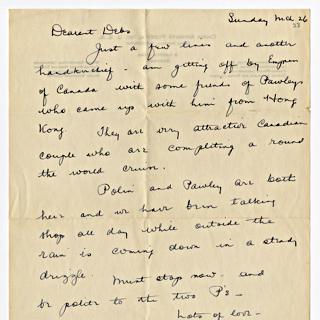 Sunday Mch 26
33
Dearest Debs
Just a few lines and another
handkerchief - am getting off by Empress
of Canada with some friends of Pawleys
who came up with him from Hong
Kong. They are very attractive Canadian
couple who are completing a round
the world cruise.
Polin and Pawley are both
here and we have been talking
shop all day while outside the
rain is coming down in a steady
drizzle. Must stop now - and
be polite to the two P's -
Lots of love -